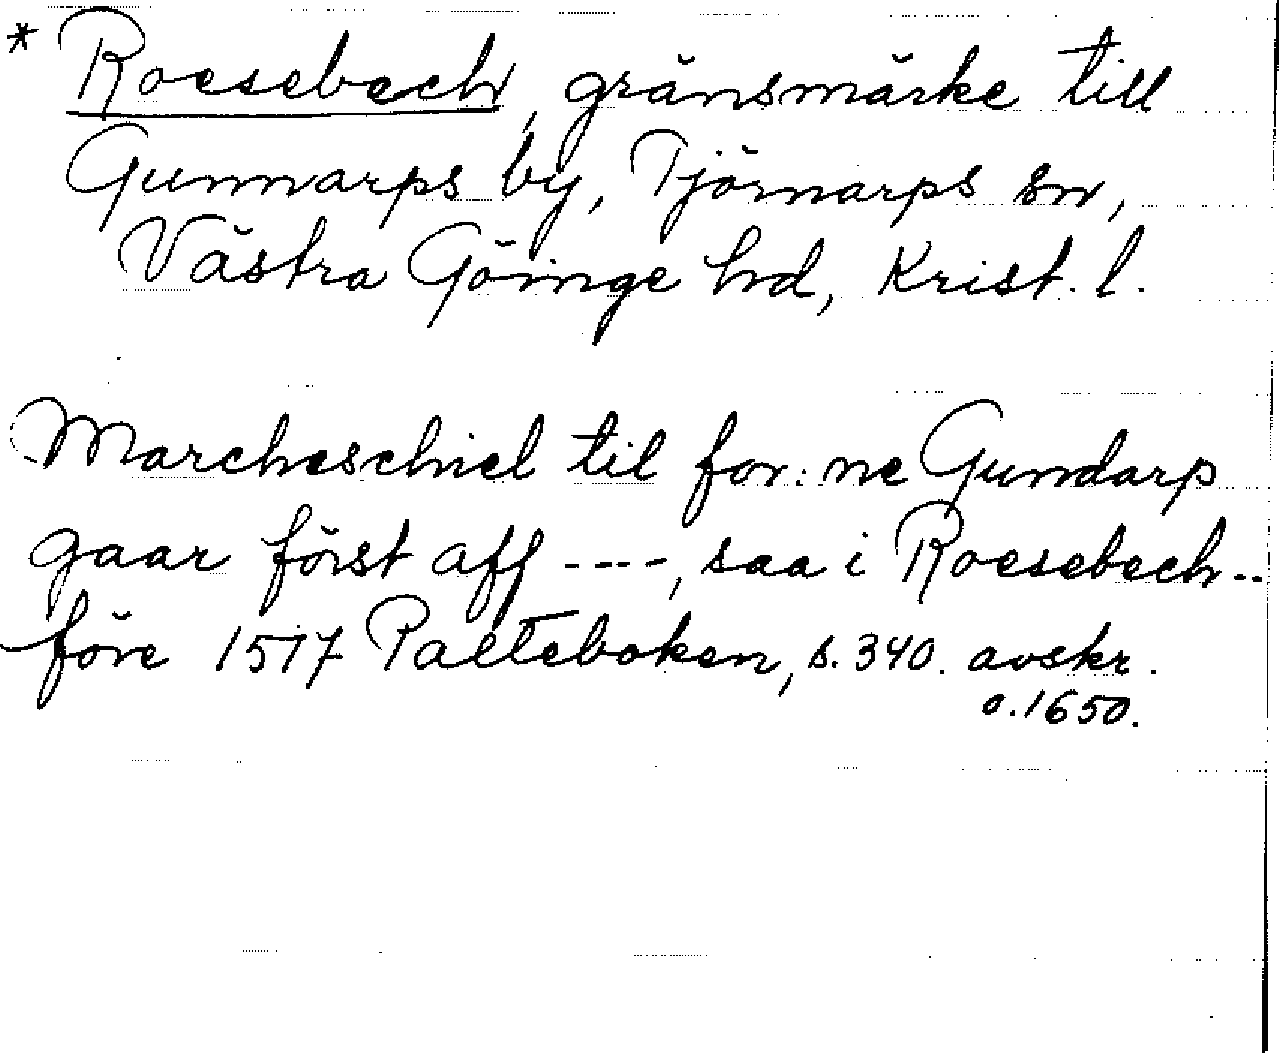 * Roesebech, gränsmärke till
Gunnarps by, Tjörnarps sn,
Västra Göinge hd, Krist. l.
Marcheschiel til for: ne Gundarp
gaar först aff ----, saa i Roesebech--
före 1517 Palteboken, s. 340. avskr.
o. 1650.